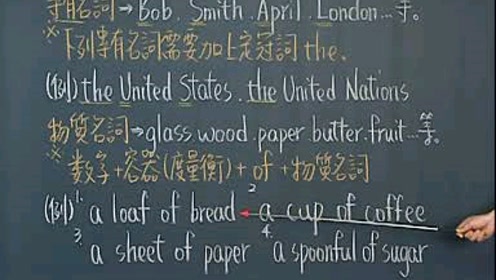 專有名詞→Bob.Smith.April.London…等。
※下列專有名詞需要加上定冠詞 the.
(例) the United States. the United Nations
物質名詞→glass.wood.paper.butter.fruit…等。
※數字+容器(度量衡)+of+物質名詞
(例) 1. a loaf of bread 2. a cup of coffee
3. a sheet of paper 4. a spoonful of sugar